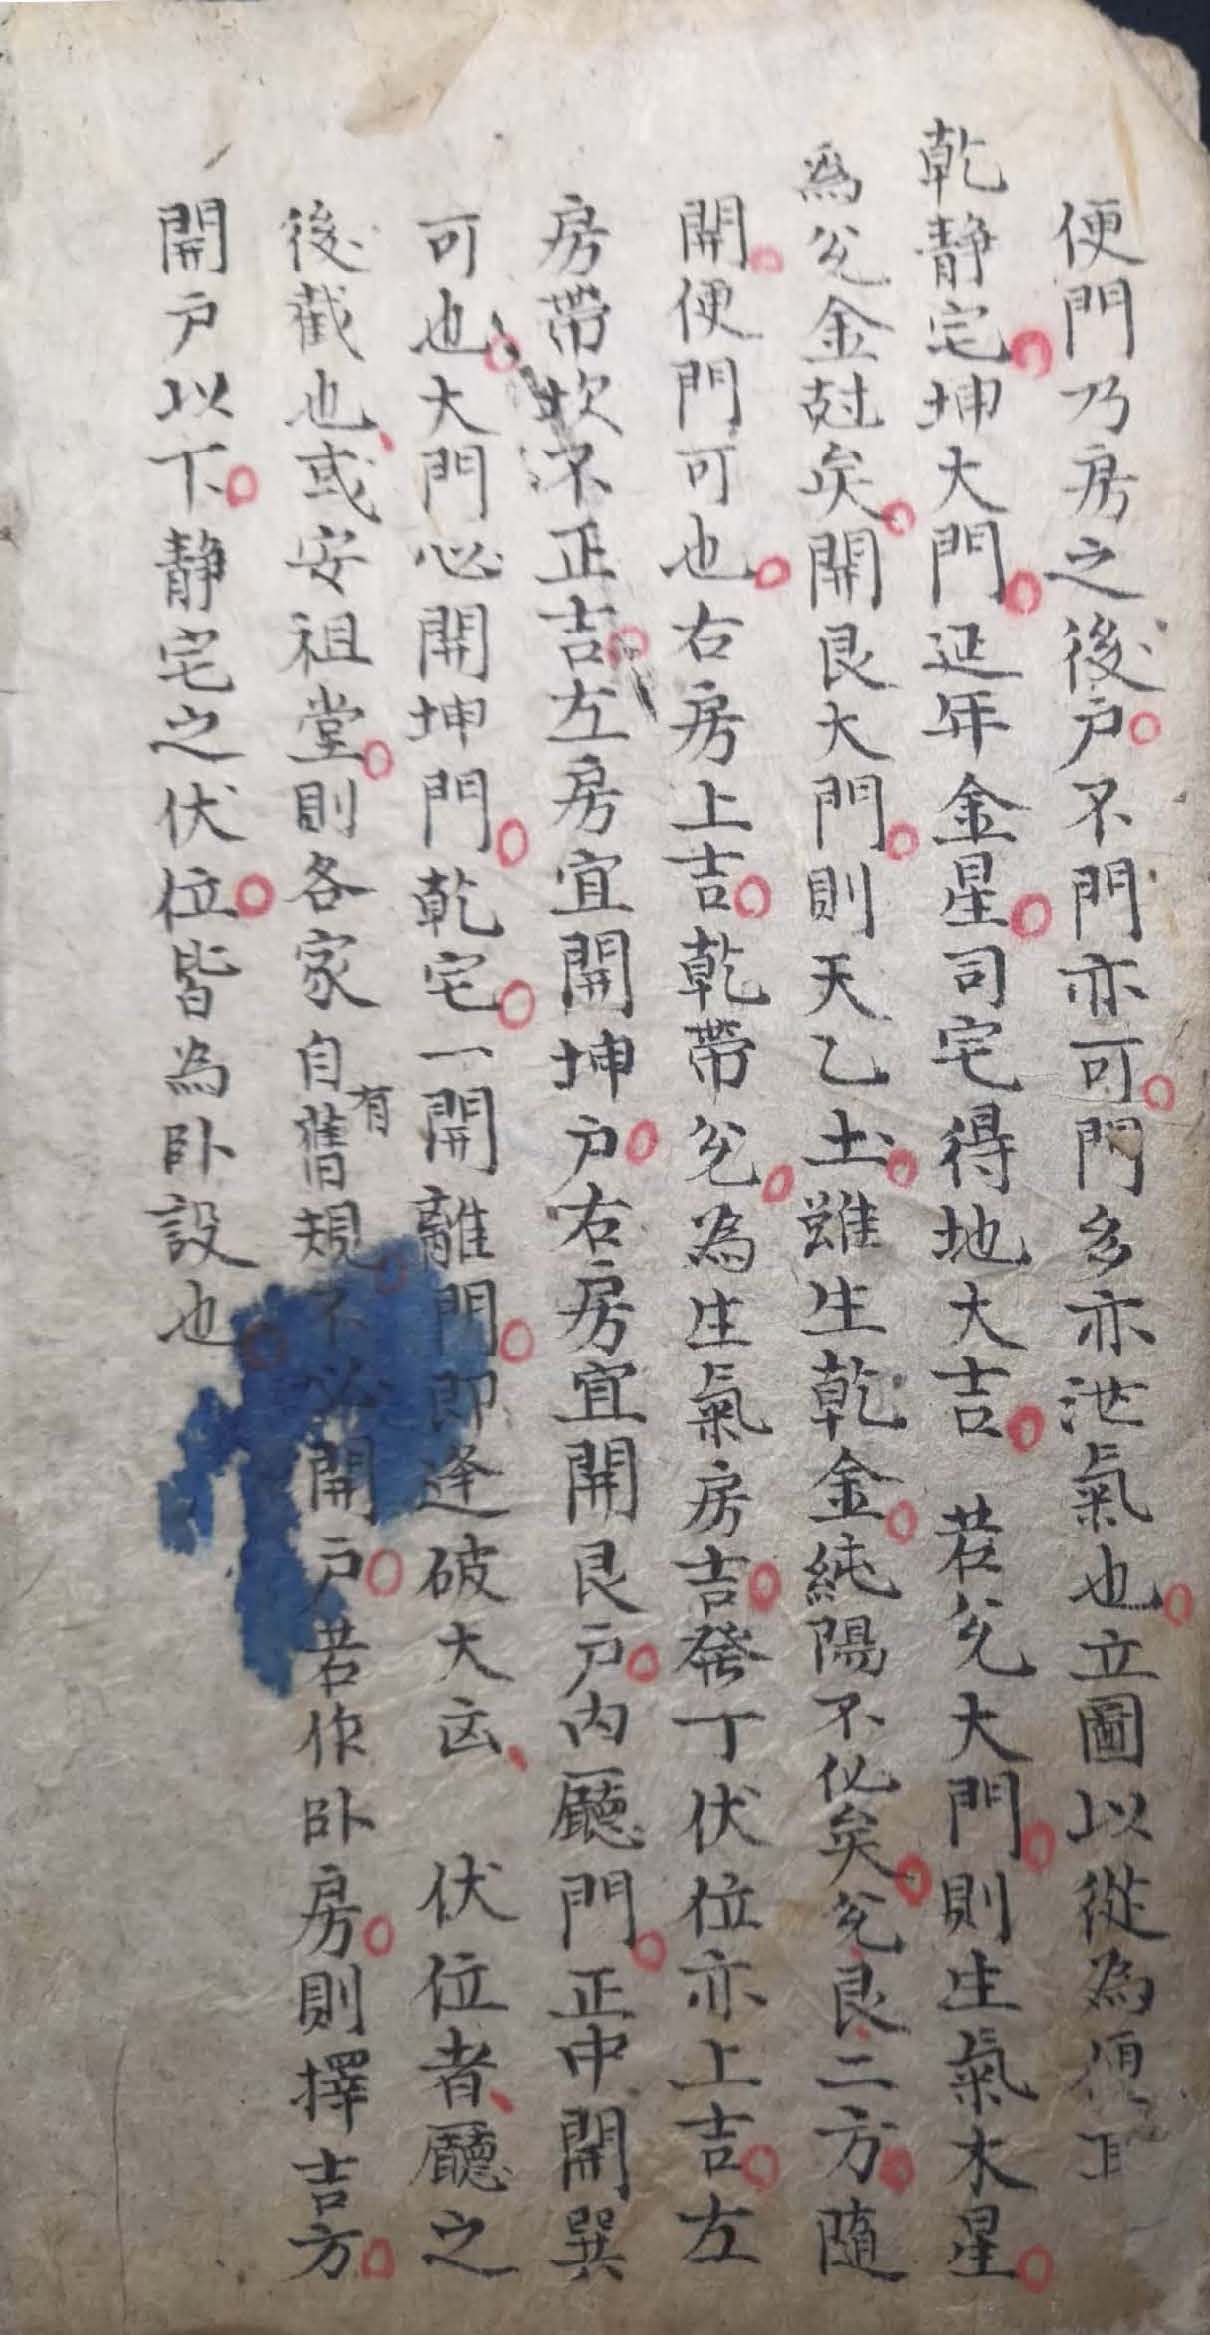 便門乃房之後户不門亦可門多亦泄氣也立圖以從為便
乾静宅坤大門延年金星司宅得地大吉 若兑大門則生氣木星
為兑金尅矣開艮大門則天乙土雖生乾金純陽不化矣兑艮二方隨
開便門可也右房上吉乾帶兑為生氣房吉發丁伏位亦上吉左
房帶坎不正吉左房宜開坤户右房宜開艮户内廳門正中開巽
可也大門必開坤門乾宅一開離門即逢破大凶 伏位者廳之
後截也或安祖堂則各家自有舊規不必開户若作卧房則擇吉方
開户以下静宅之伏位皆為卧設也